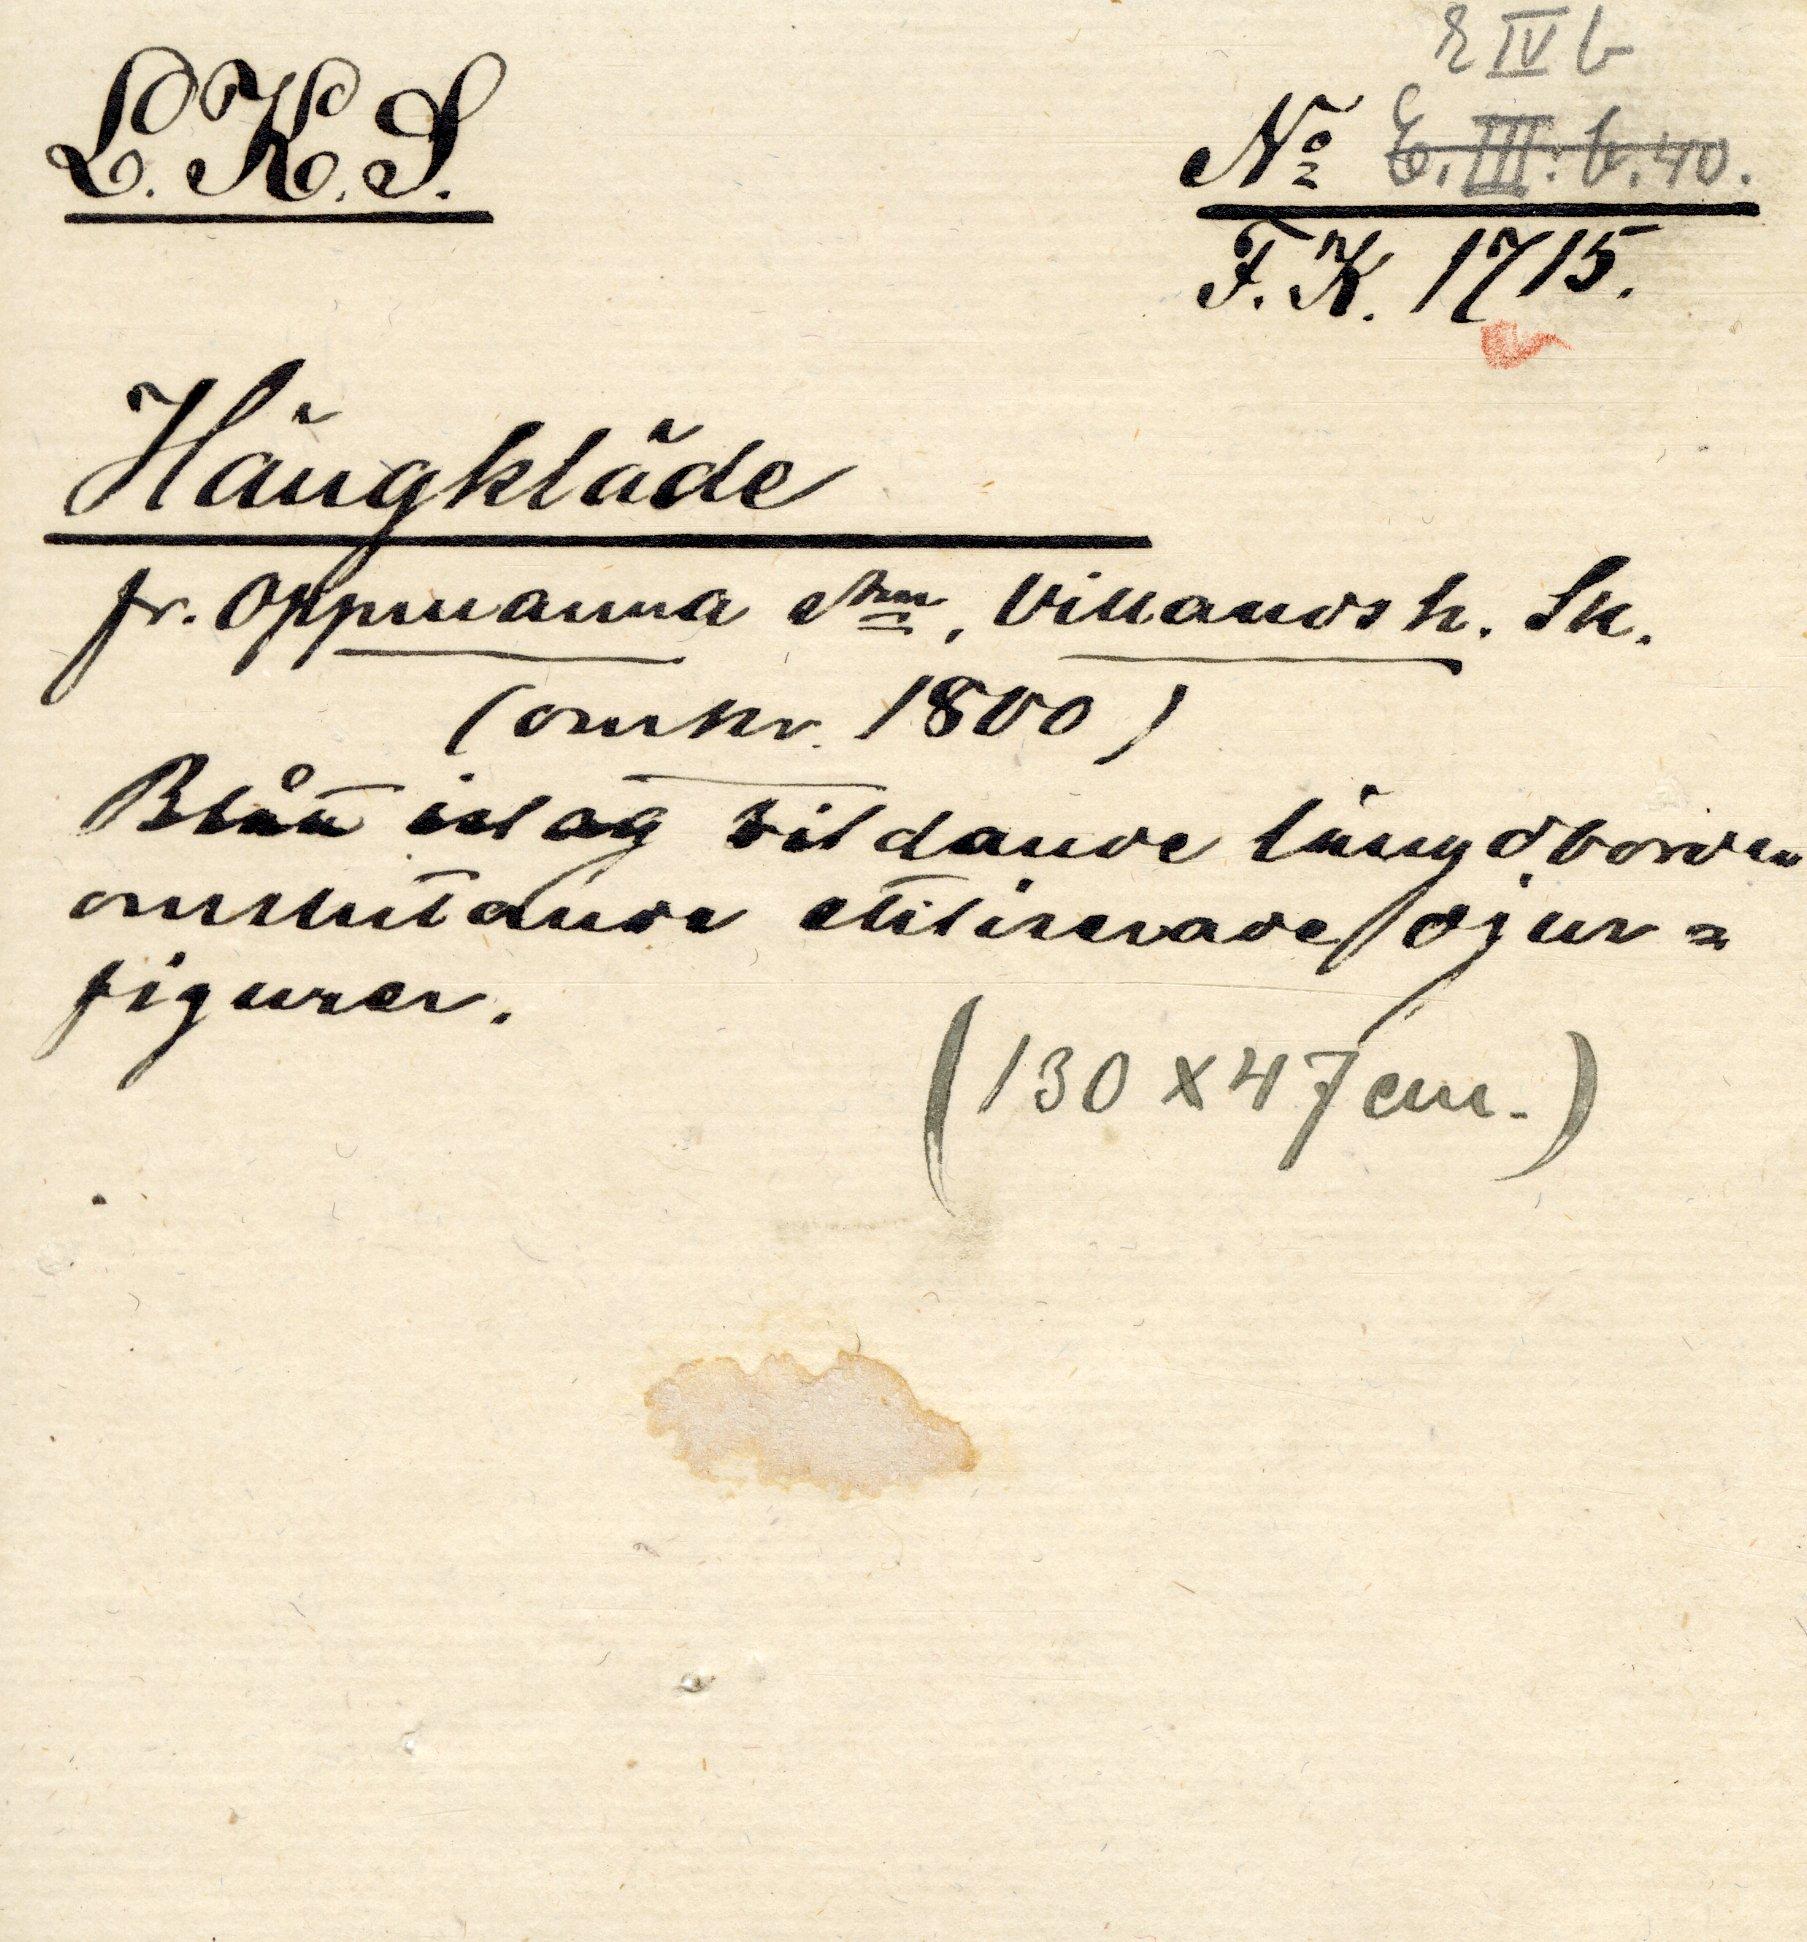 E IV b
L.K.S.
No E.III:b.40.
F.K. 1715.
Hängkläde
fr. Oppmanna skn, Villands h. Sk.
(omkr. 1800)
Blått inslag bildande längdborder
omslutande stiliserade djur=
figurer.
(130 x 47 cm.)